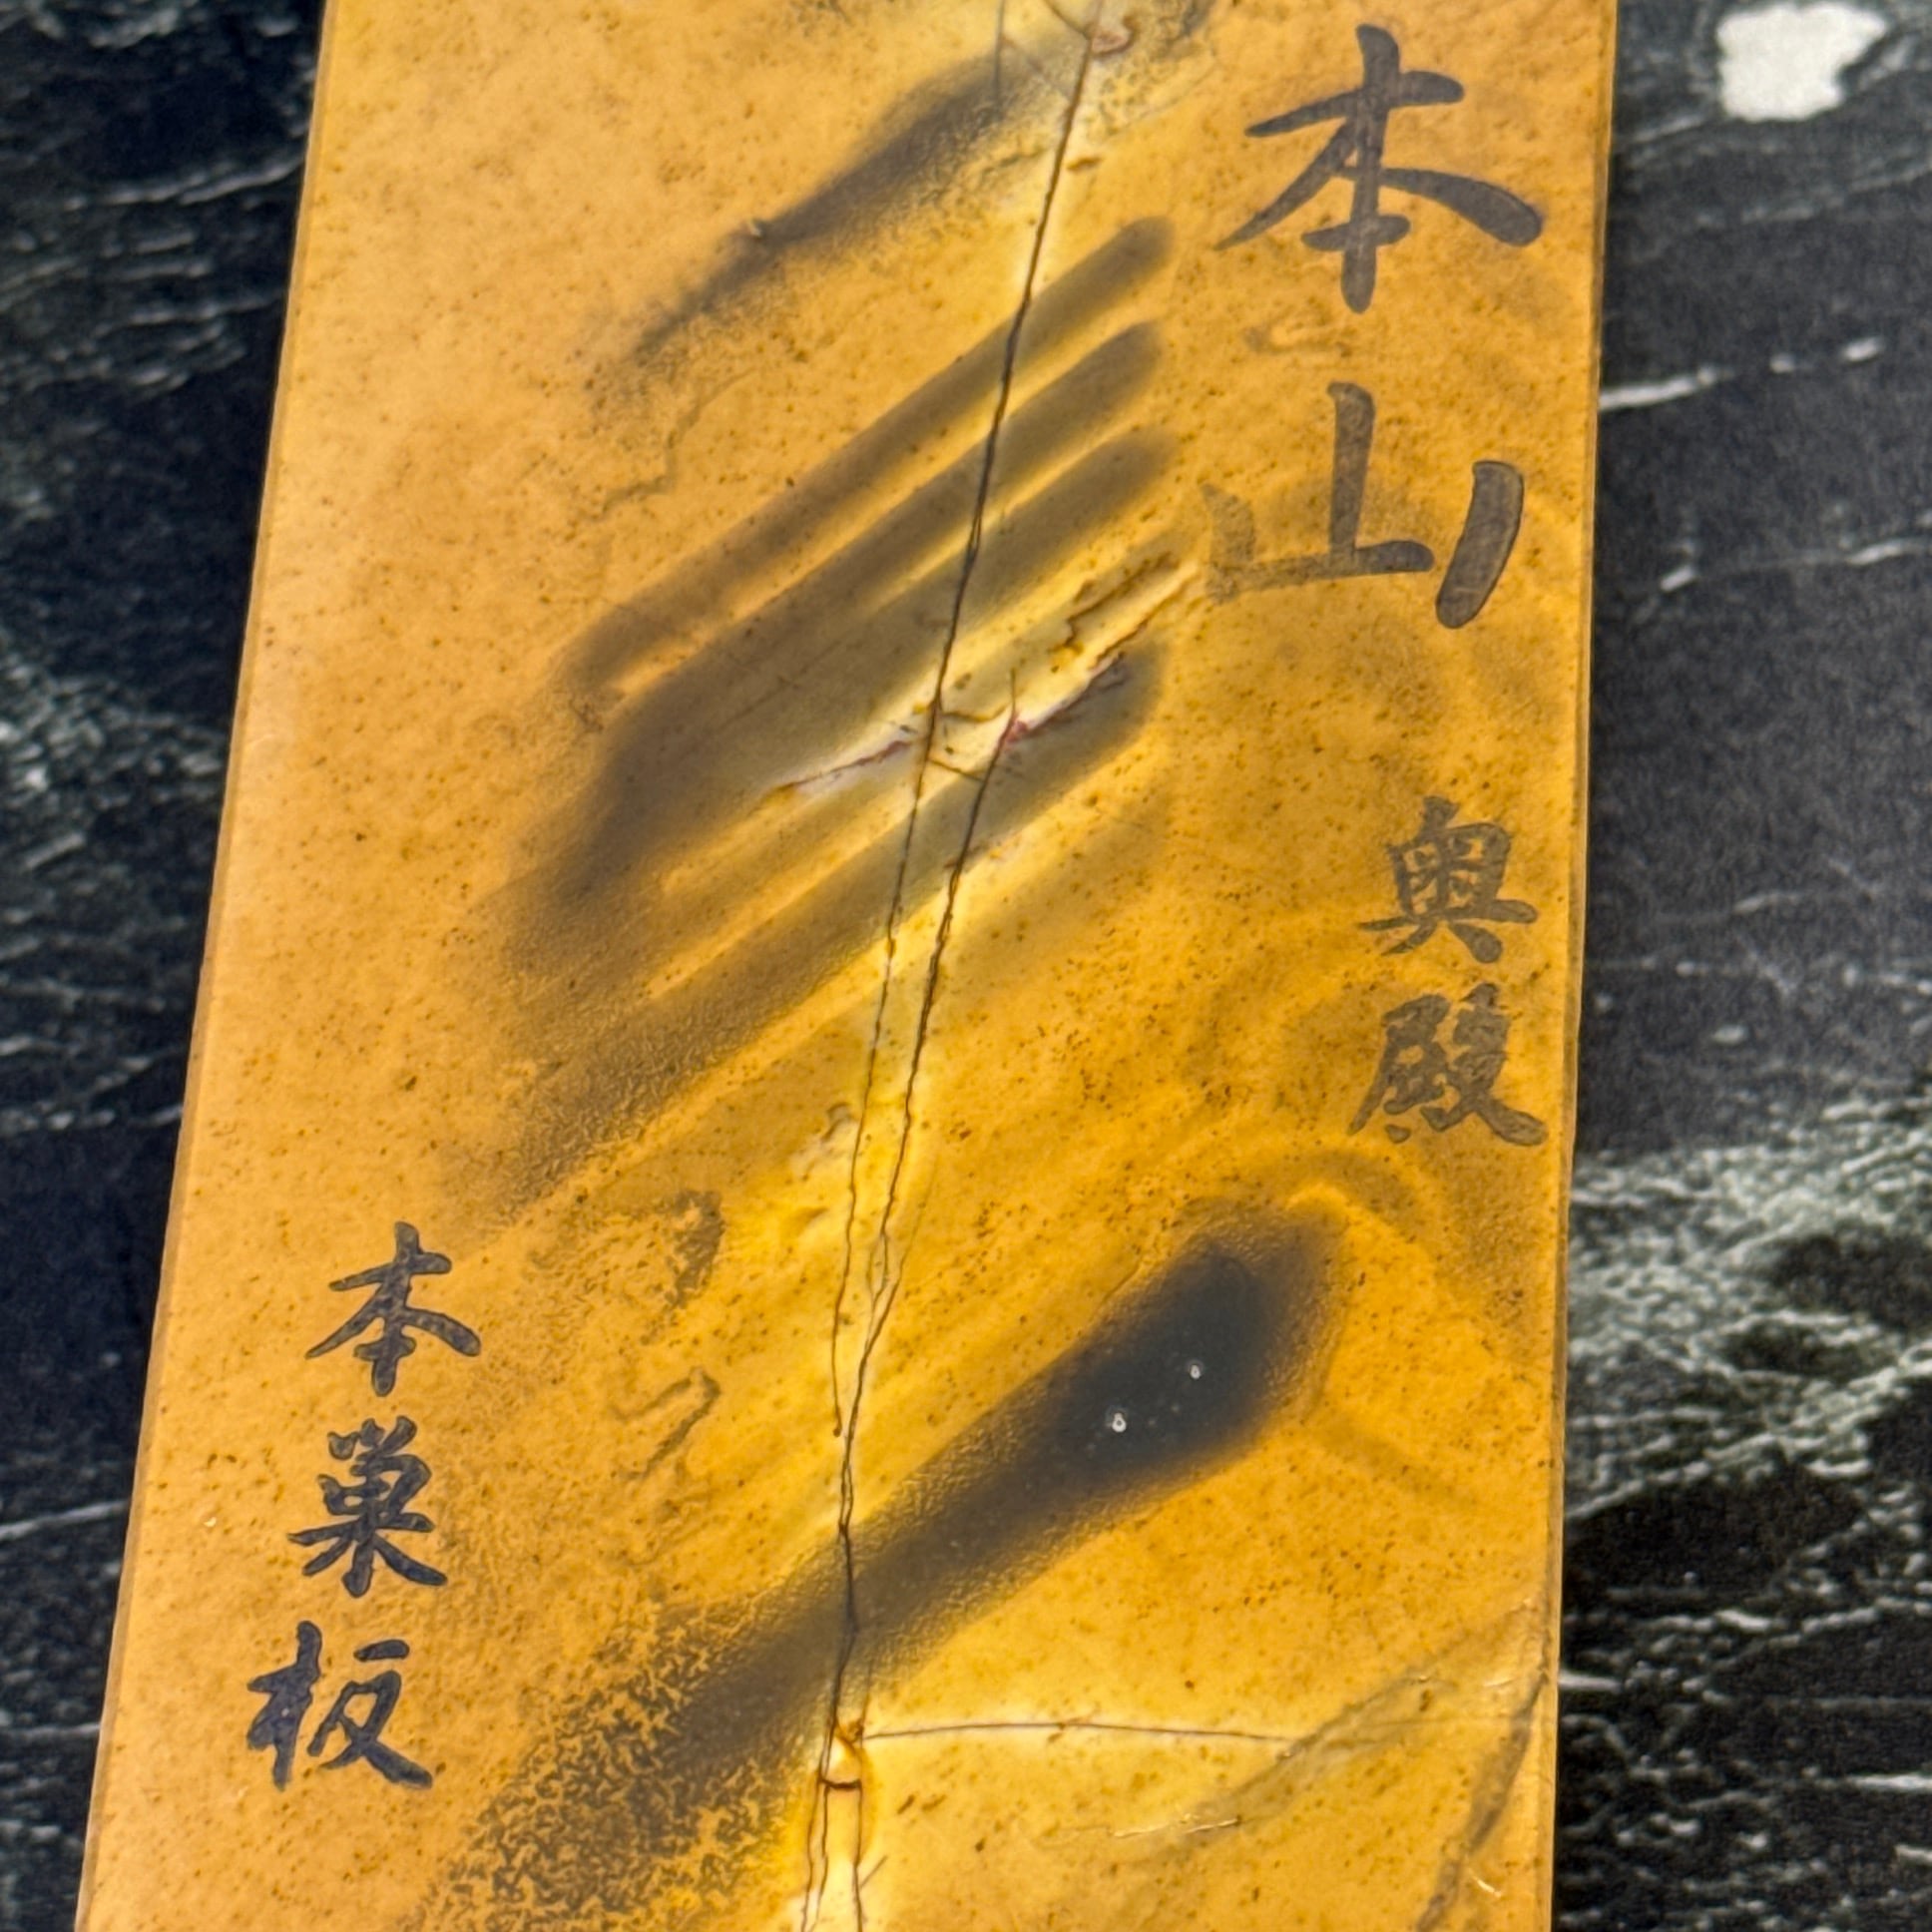 本山
奥殿
本巣板